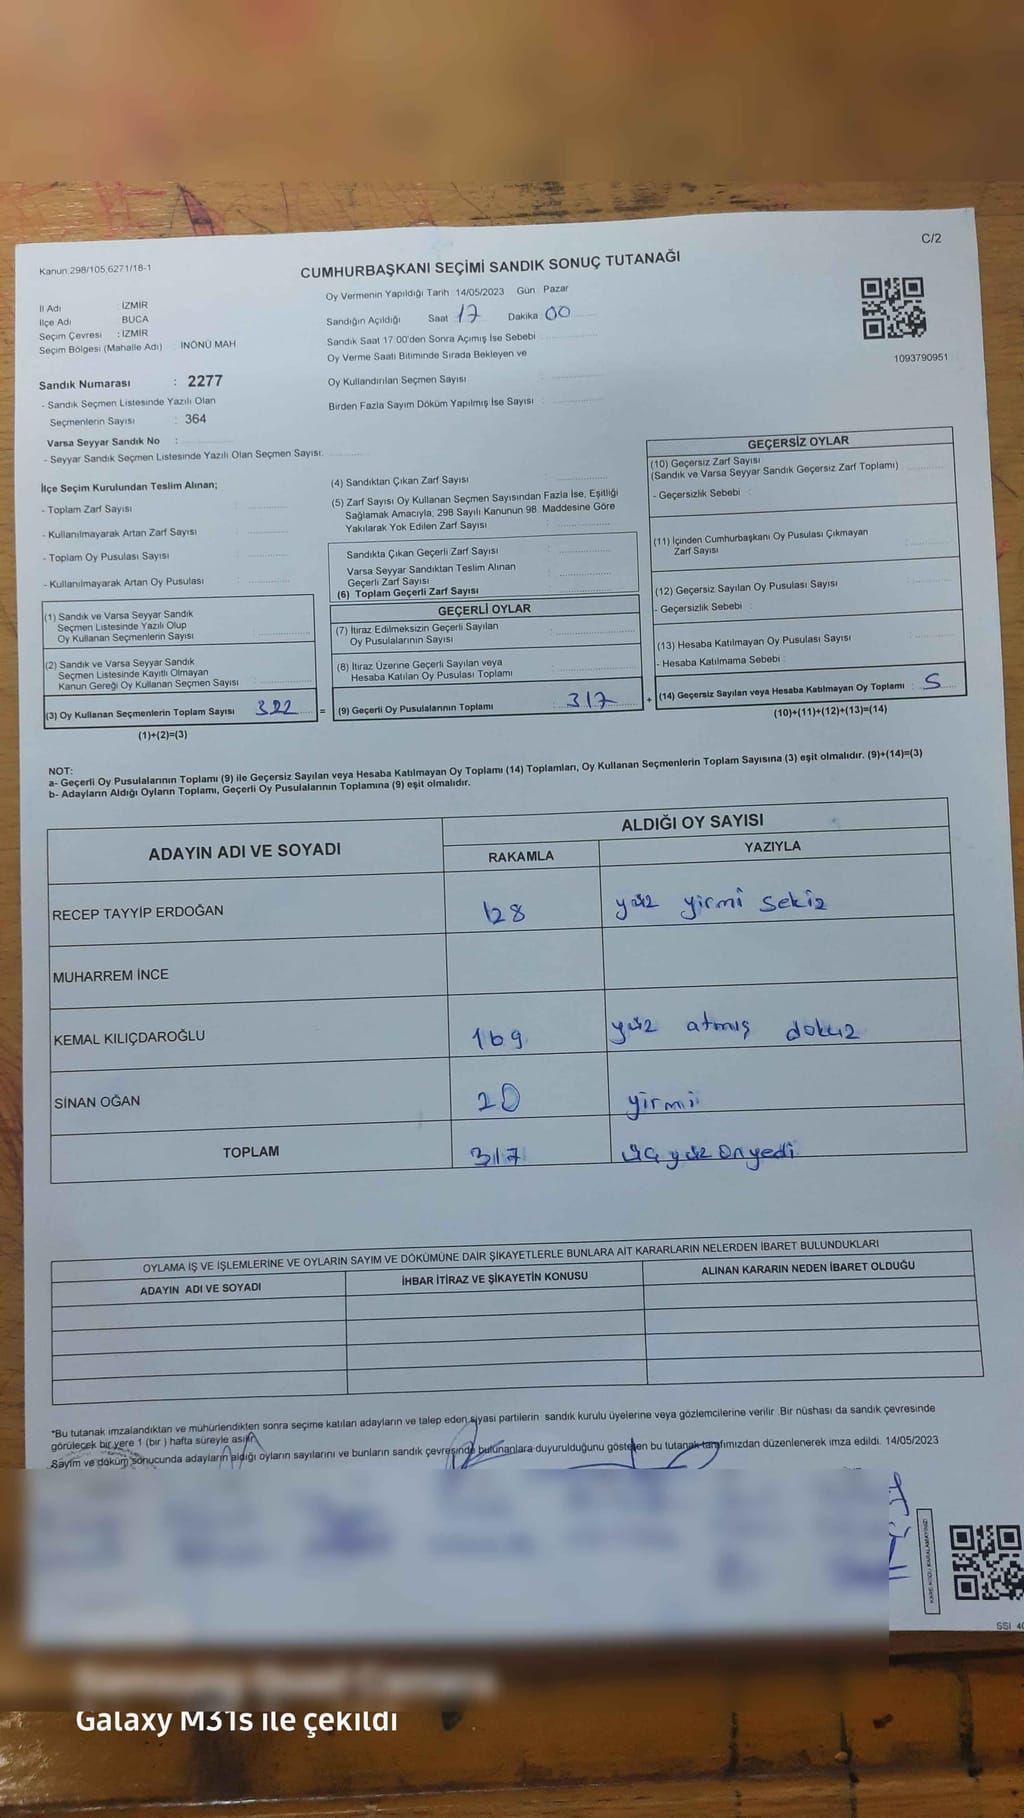 C/2
Kanun,298/105,6271/18-1
CUMHURBAŞKANI SEÇİMİ SANDIK SONUÇ TUTANAĞI
İl Adı : İZMİR
İlçe Adı : BUCA
Seçim Çevresi : İZMİR
Seçim Bölgesi (Mahalle Adı) İNÖNÜ MAH
Oy Vermenin Yapıldığı Tarih 14/05/2023 Gün Pazar
Sandığın Açıldığı Saat 17 Dakika 00
Sandık Saat 17 00'den Sonra Açımış İse Sebebi
Oy Verme Saati Bitiminde Sırada Bekleyen ve
Oy Kullandırılan Seçmen Sayısı :
Birden Fazla Sayım Döküm Yapılmış İse Sayısı :
1093790951
Sandık Numarası : 2277
- Sandık Seçmen Listesinde Yazılı Olan
Seçmenlerin Sayısı : 364
Varsa Seyyar Sandık No :
- Seyyar Sandık Seçmen Listesinde Yazılı Olan Seçmen Sayısı:
İlçe Seçim Kurulundan Teslim Alınan;
- Toplam Zarf Sayısı :
- Kullanılmayarak Artan Zarf Sayısı :
- Toplam Oy Pusulası Sayısı :
- Kullanılmayarak Artan Oy Pusulası :
(1) Sandık ve Varsa Seyyar Sandık
Seçmen Listesinde Yazılı Olup
Oy Kullanan Seçmenlerin Sayısı :
(2) Sandık ve Varsa Seyyar Sandık
Seçmen Listesinde Kayıtlı Olmayan
Kanun Gereği Oy Kullanan Seçmen Sayısı :
(3) Oy Kullanan Seçmenlerin Toplam Sayısı 322 =
(1)+(2)=(3)
(4) Sandıktan Çıkan Zarf Sayısı :
(5) Zarf Sayısı Oy Kullanan Seçmen Sayısından Fazla İse, Eşitliği
Sağlamak Amacıyla, 298 Sayılı Kanunun 98. Maddesine Göre
Yakılarak Yok Edilen Zarf Sayısı :
Sandıkta Çıkan Geçerli Zarf Sayısı :
Varsa Seyyar Sandıktan Teslim Alınan
Geçerli Zarf Sayısı :
(6) Toplam Geçerli Zarf Sayısı :
GEÇERLİ OYLAR
(7) İtiraz Edilmeksizin Geçerli Sayılan
Oy Pusulalarının Sayısı :
(8) İtiraz Üzerine Geçerli Sayılan veya
Hesaba Katılan Oy Pusulası Toplamı :
(9) Geçerli Oy Pusulalarının Toplamı : 317 +
GEÇERSİZ OYLAR
(10) Geçersiz Zarf Sayısı
(Sandık ve Varsa Seyyar Sandık Geçersiz Zarf Toplamı)
- Geçersizlik Sebebi :
(11) İçinden Cumhurbaşkanı Oy Pusulası Çıkmayan
Zarf Sayısı :
(12) Geçersiz Sayılan Oy Pusulası Sayısı :
- Geçersizlik Sebebi :
(13) Hesaba Katılmayan Oy Pusulası Sayısı :
- Hesaba Katılmama Sebebi :
(14) Geçersiz Sayılan veya Hesaba Katılmayan Oy Toplamı : 5
(10)+(11)+(12)+(13)=(14)
NOT:
a- Geçerli Oy Pusulalarının Toplamı (9) ile Geçersiz Sayılan veya Hesaba Katılmayan Oy Toplamı (14) Toplamları, Oy Kullanan Seçmenlerin Toplam Sayısına (3) eşit olmalıdır. (9)+(14)=(3)
b- Adayların Aldığı Oyların Toplamı, Geçerli Oy Pusulalarının Toplamına (9) eşit olmalıdır.
ADAYIN ADI VE SOYADI
ALDIĞI OY SAYISI
RAKAMLA YAZIYLA
RECEP TAYYİP ERDOĞAN 128 yüz yirmi sekiz
MUHARREM İNCE
KEMAL KILIÇDAROĞLU 169 yüz atmış dokuz
SİNAN OĞAN 20 yirmi
TOPLAM 317 üç yüz onyedi
OYLAMA İŞ VE İŞLEMLERİNE VE OYLARIN SAYIM VE DÖKÜMÜNE DAİR ŞİKAYETLERLE BUNLARA AİT KARARLARIN NELERDEN İBARET BULUNDUKLARI
ADAYIN ADI VE SOYADI İHBAR İTİRAZ VE ŞİKAYETİN KONUSU ALINAN KARARIN NEDEN İBARET OLDUĞU
*Bu tutanak imzalandıktan ve mühürlendikten sonra seçime katılan adayların ve talep eden siyasi partilerin sandık kurulu üyelerine veya gözlemcilerine verilir .Bir nüshası da sandık çevresinde
görülecek bir yere 1 (bir ) hafta süreyle asılır.
Sayım ve döküm sonucunda adayların aldığı oyların sayılarını ve bunların sandık çevresinde bulunanlara duyurulduğunu gösteren bu tutanak tarafımızdan düzenlenerek imza edildi. 14/05/2023
KARE KODU KARALAMAYINIZ!
Galaxy M31s ile çekildi